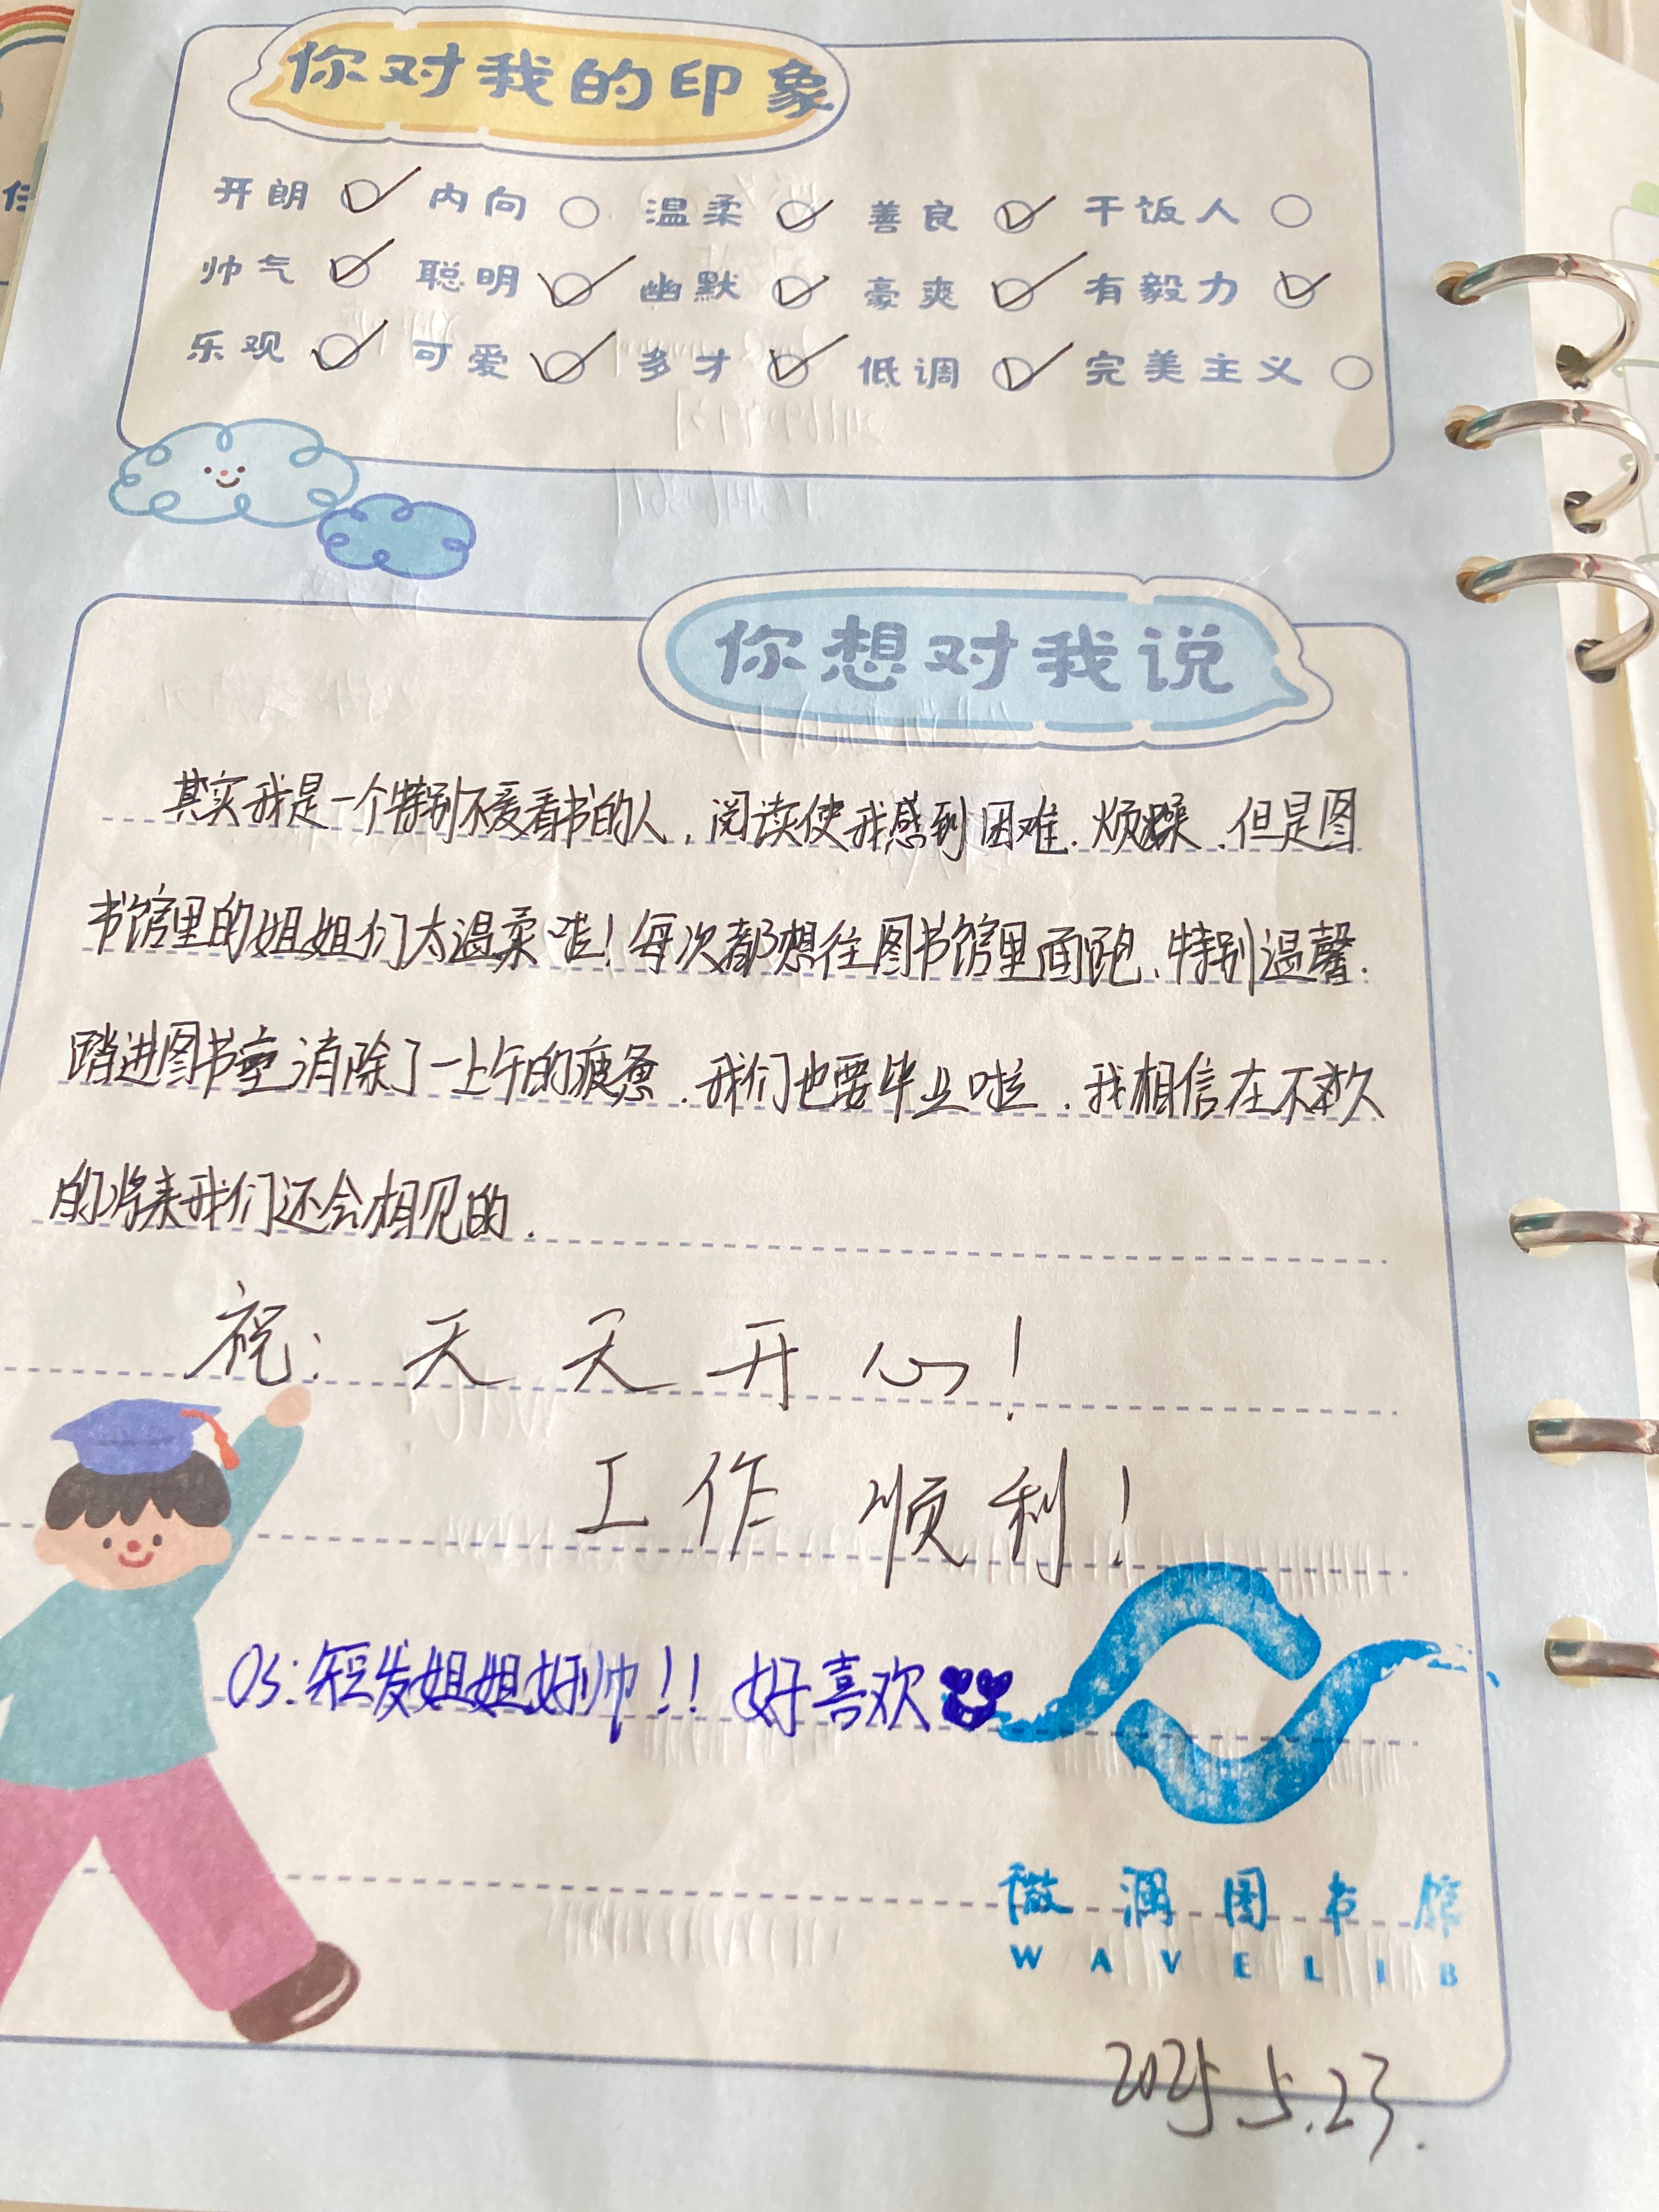 你对我的印象
开朗 内向 温柔 善良 干饭人
帅气 聪明 幽默 豪爽 有毅力
乐观 可爱 多才 低调 完美主义
你想对我说
其实我是一个特别不爱看书的人，阅读使我感到困难、烦躁、但是图
书馆里的姐姐们太温柔啦！每次都想往图书馆里面跑、特别温馨.
踏进图书室消除了一上午的疲惫、我们也要毕业啦、我相信在不久
的将来我们还会相见的.
祝：天天开心！
工作顺利！
OS：短发姐姐好帅！！好喜欢
微澜图书馆
WAVELIB
2025.5.23.